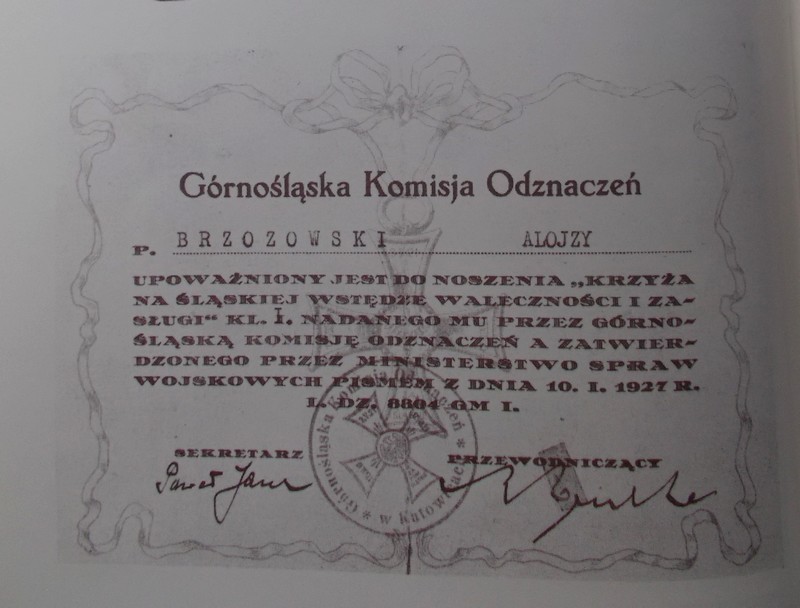 Górnośląska Komisja Odznaczeń
P. BRZOZOWSKI ALOJZY
UPOWAŻNIONY JEST DO NOSZENIA „KRZYŻA
NA ŚLĄSKIEJ WSTĘDZE WALECZNOŚCI I ZA-
SŁUGI“ KL. I. NADANEGO MU PRZEZ GÓRNO-
ŚLĄSKĄ KOMISJĘ ODZNACZEŃ A ZATWIER-
DZONEGO PRZEZ MINISTERSTWO SPRAW
WOJSKOWYCH PISMEM Z DNIA 10. I. 1927 R.
L. DZ. 8804 GM I.
Górnośląska Komisja Odznaczeń * w Katowicach *
SEKRETARZ PRZEWODNICZĄCY
Paweł